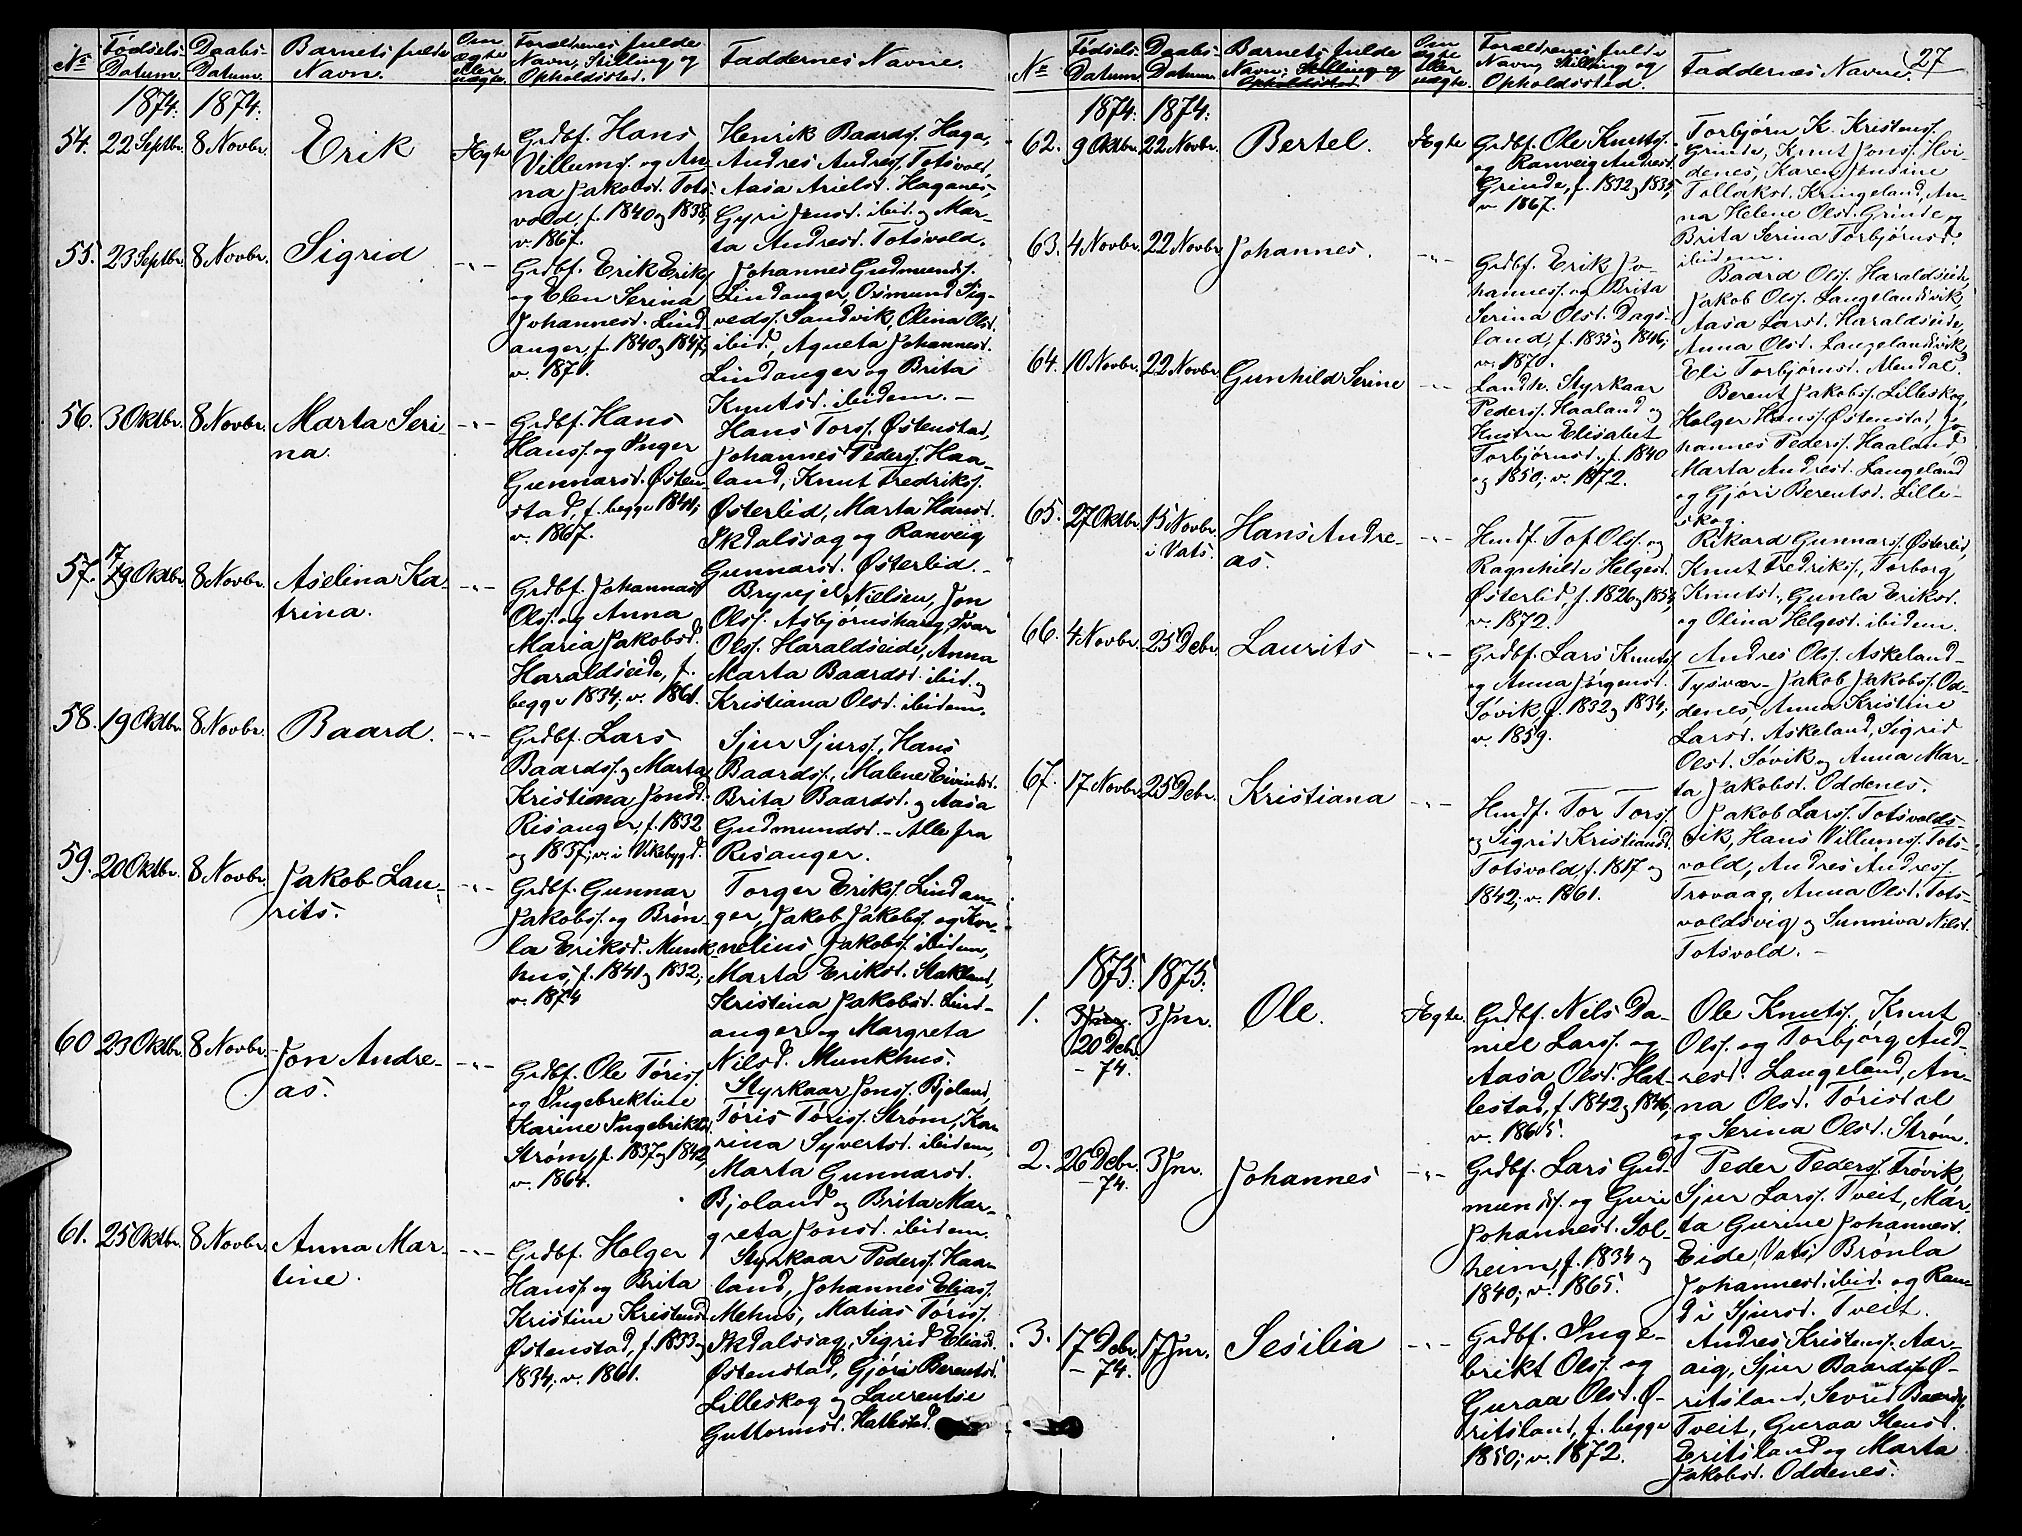 No
Fødsels-
Datum.
Daabs-
Datum.
Barnets fulde
Navn.
Om
ægte
eller
uægte.
Forældrenes fulde
Navn, Stilling og
Opholdssted.
Faddernes Navne.
1874. 1874.
54. 22 Septbr. 8 Novbr. Erik Ægte
Grdbf. Hans
Villumss. og An-
na Jakobsd. Tots-
vold, f. 1840 og 1838;
v. 1867.
Henrik Baardss. Haga,
Andres Andress. Totsvold,
Aasa Arielsd. Haganes,
Gyri Jensd. ibid. og Mar-
ta Andresd. Totsvold.
55. 23 Septbr. 8 Novbr. Sigrid -"-
Grdbf. Erik Eriks.
og Elen Serina
Johannesd. Lind-
anger, f. 1840 og 1847,
v. 1871.
Johannes Gudmunds.
Lindanger, Osmund Sig-
vedss. Sandvik, Olina Olsd.
ibid., Agneta Johannesd.
Lindanger og Brita
Knutsd. ibidem. -
56. 3 Oktbr. 8 Novbr. Marta Seri-
na. -"-
Grdbf. Hans
Hanss. og Inger
Gunnarsd. Østen-
stad, f. begge 1841;
v. 1867.
Hans Torss. Østenstad,
Johannes Pederss. Haa-
land, Knut Fredrikss.
Østerlid, Marta Hansd.
Skdalssag og Ranveig
Gunnarsd. Østerlid. -
57. 17 Oktbr. 8 Novbr. Aselina Ka-
trina. -"-
Grdbf. Johannes
Olss. og Anna
Maria Jakobsd.
Haraldseide, f.
begge 1834; v. 1861.
Bryvjel Nielsen, Jon
Olss. Asbjørnshaug, Ivar
Olss. Haraldseide, Anna
Marta Baardsd. ibid. og
Kristiana Olsd. ibidem.
58. 19 Oktbr. 8 Novbr. Baard. -"-
Grdbf. Lars
Baardss. og Marta
Kristina Jonsd.
Risanger, f. 1832
og 1837; v. i Vikebygd.
Sjur Sjurss., Hans
Baardss., Malene Eivindsd.
Brita Baardsd. og Aasa
Gudmundsd. - Alle fra
Risanger.
59. 20 Oktbr. 8 Novbr. Jakob Lau-
rits. -"-
Grdbf. Gunnar
Jakobss. og Brøn-
la Eriksd. Munk-
hus, f. 1841 og 1832;
v. 1874
Torger Erikss. Lindan-
ger, Jakob Jakobss. og Kor-
nelius Jakobss. ibidem,
Marta Eriksd. Stakland,
Kristina Jakobsd. Lind-
anger og Margreta
Nilsd. Munkhus.
60 23 Oktbr. 8 Novbr. Jon Andre-
as. -"-
Grdbf. Ole Tøriss.
og Ingebrektine
Karine Ingebriktsd.
Strøm, f. 1837 og 1842,
v. 1864.
Styrkaar Jonss. Bjoland,
Tøris Tøriss. Strøm, Ka-
rina Syvertsd. ibidem,
Marta Gunnarsd.
Bjoland og Brita Mar-
greta Jonsd. ibidem.
61. 25 Oktbr. 8 Novbr. Anna Mar-
tine. -"-
Grdbf. Holger
Hanss. og Brita
Kristine Kristensd.
Østenstad, f. 1833 og
1834; v. 1861.
Styrkaar Pederss. Haa-
land, Johannes Eliass.
Mehus, Matias Tøriss.
Skdalssag, Sigrid Eliasd.
Østenstad, Gjøri Berentsd.
Lilleskog og Laurentse
Guttormsd. Hatlestad.
27
No
Fødsels-
Datum.
Daabs-
Datum.
Barnets fulde
Navn, Stilling og
Opholdssted
Om
ægte
eller
uægte.
Forældrenes fulde
Navn, Stilling og
Opholdssted.
Faddernes Navne.
1874. 1874.
62. 9 Oktbr. 22 Novbr. Bertel. Ægte
Grdbf. Ole Knutss.
og Ranveig Andresd.
Grinde, f. 1832 og 1835;
v. 1867.
Torbjørn K. Kristenss.
Grinde, Knut Jonss. Hvi-
denes, Karen Jensine
Tollaksd. Kringeland, An-
na Helene Olsd. Grinde og
Brita Serina Torbjørnsd.
ibidem.
63. 4 Novbr. 22 Novbr Johannes. -"-
Grdbf. Erik Jo-
hanness. og Brita
Serina Olsd. Dags-
land, f. 1835 og 1846;
v. 1870.
Baard Olss. Haraldseide,
Jakob Olss. Langelandsvik,
Aasa Larsd. Haraldseide,
Anna Olsd. Langelandsvik,
Eli Torbjørnsd. Alendal.
64. 10 Novbr. 22 Novbr. Gunhild Serine -"-
Landh. Styrkaar
Pederss. Haaland og
Hustru Elisabet
Torbjørnsd., f. 1840
og 1850; v. 1872.
Berent Jakobss. Lilleskog,
Holger Hanss. Østenstad, Jo-
hannes Pederss. Haaland,
Marta Andresd. Langeland
og Gjøri Berentsd. Lille-
skog.
65. 27 Oktbr. 15 Novbr.
i Vats. Hans Andre-
as. -"-
Hmdf. Tof Olss. og
Ragnhilde Helgesd.
Østerlid, f. 1826 og 1854,
v. 1872.
Rikard Gunnarss. Østerlid,
Knut Fredrikss., Torborg
Knutsd., Gunla Eriksd.
og Olina Helgesd. ibidem.
66. 4 Novbr. 25 Debr. Laurits -"-
Grdbf. Lars Knutss.
og Anna Jørgensd.
Søvik, f. 1832 og 1834;
v. 1859.
Andres Olss. Askeland -
Tysvær - Jakob Jakobss. Od-
denes, Anna Kristine
Larsd. Askeland, Sigrid
Olsd. Søvik og Anna Mar-
ta Jakobsd. Oddenes.
67. 17 Novbr. 25 Debr. Kristiana -"-
Hmdf. Tor Torss.
og Sigrid Kristiansd.
Totsvold, f. 1817 og
1842; v. 1861.
Jakob Larss. Totsvolds-
vik, Hans Villumss. Tots-
vold, Andres Andress.
Trovaag, Anna Olsd. Tots-
voldsvig og Sunniva Nilsd.
Totsvold. -
1875. 1875.
1. 3 Jnr. 3 Jnr. Ole. Ægte.
20 Debr.
- 74.
Grdbf. Nils Da-
niel Larss. og
Aasa Olsd. Hat-
lestad, f. 1842 og 1846;
v. 1865.
Ole Knutss., Knut
Olss. og Torbjørg And-
resd. Langeland, An-
na Olsd. Tørisdal
og Serina Olsd. Strøm.
2. 26 Debr. 3 Jnr. Johannes -"-
- 74.
Grdbf. Lars Gud-
mundss. og Guri
Johannesd. Sol-
heim, f. 1834 og
1840; v. 1865.
Peder Pederss. Trovik,
Sjur Larss. Tveit, Mar-
ta Gurine Johannesd.
Eide, Vats, Brønla
Johannesd. ibid. og Ran-
di Sjursd. Tveit.
3. 17 Debr. 17 Jnr. Sesilia -"-
- 74.
Grdbf. Inge-
brikt Olss. og
Guraa Olsd. Ø-
ritsland, f. begge
1850; v. 1872.
Andres Kristenss. Aar-
aig, Sjur Baardss. Ø-
ritsland, Sevrid Baardsd.
Tveit, Guraa Stensd.
Eritsland og Marta
Jakobsd. Oddenes.